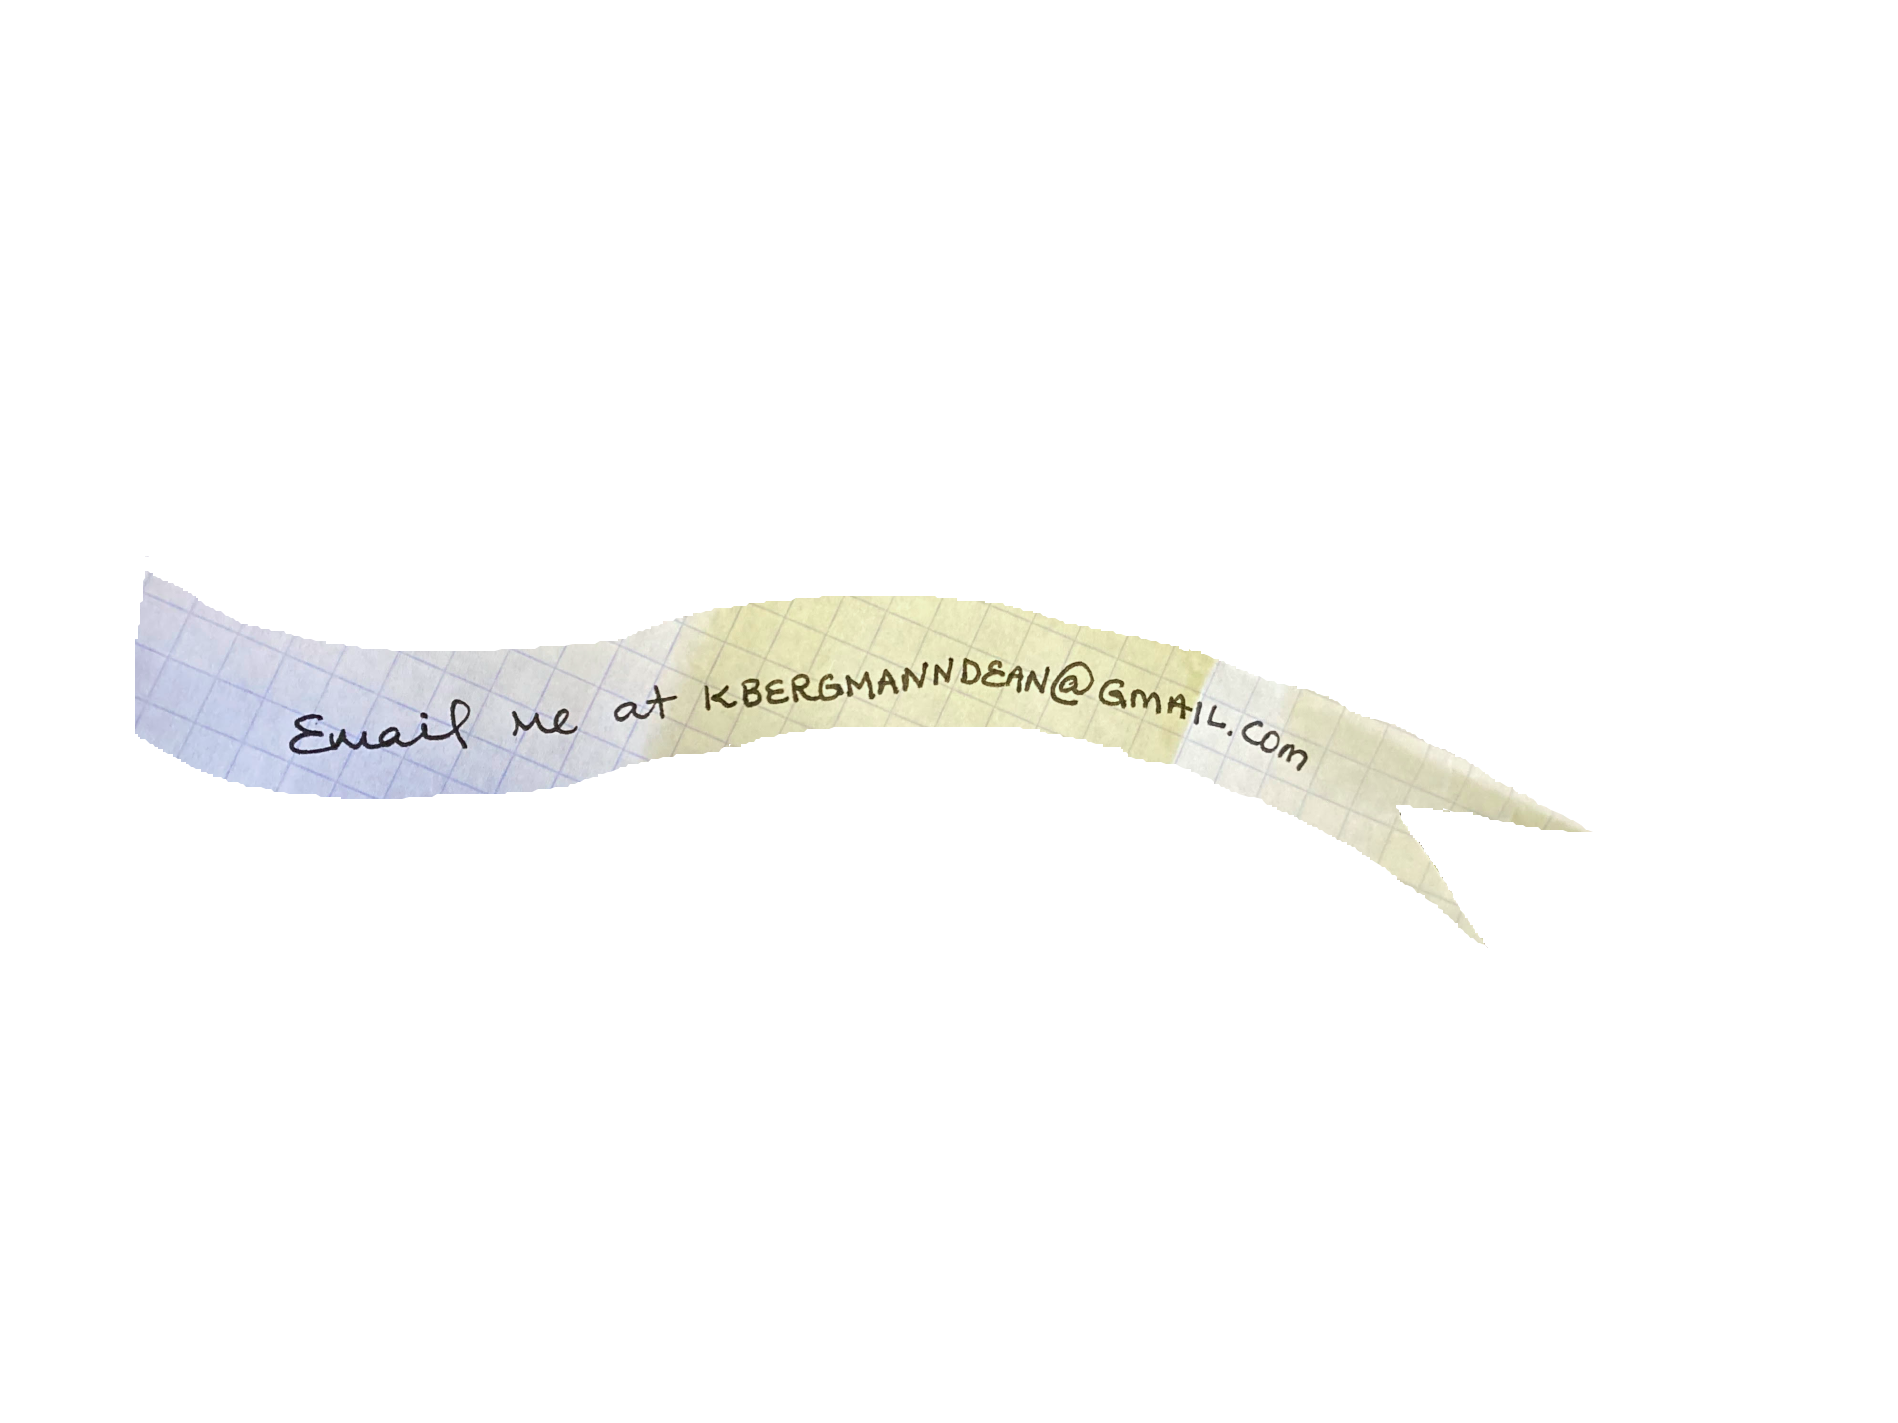 Email me at KBERGMANNDEAN@GMAIL.COM